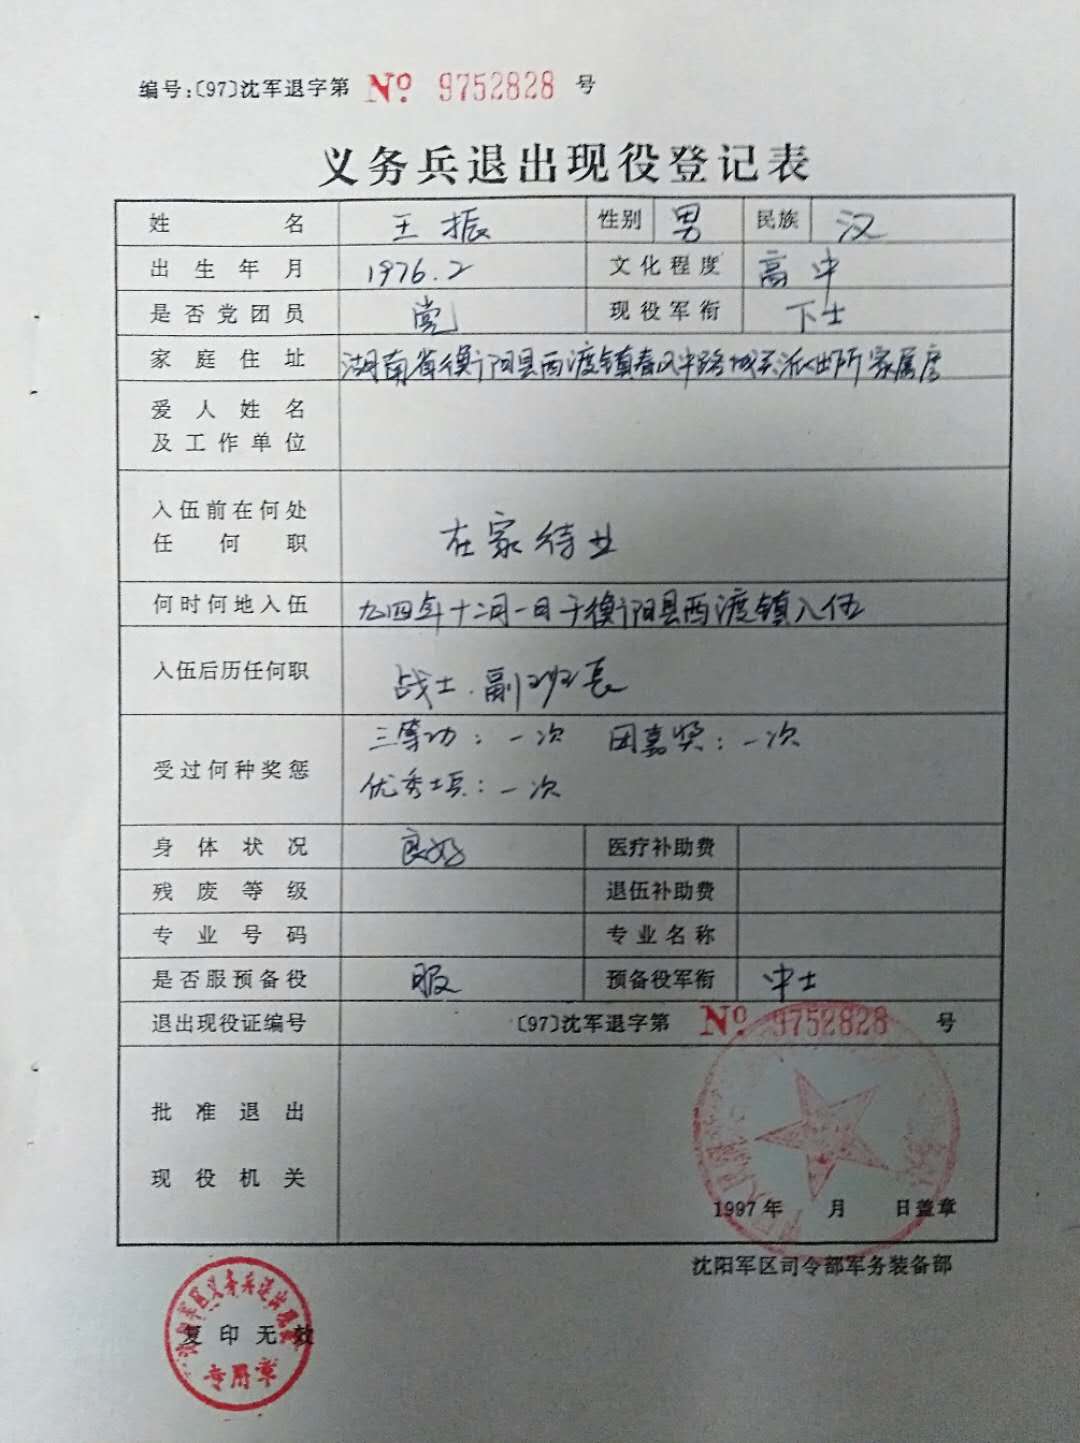 编号:〔97〕沈军退字第 No 9752828 号
义务兵退出现役登记表
姓名 王振 性别 男 民族 汉
出生年月 1976.2 文化程度 高中
是否党团员 党 现役军衔 下士
家庭住址 湖南省衡阳县西渡镇春风中路城关派出所家属房
爱人姓名
及工作单位
入伍前在何处
任何职 在家待业
何时何地入伍 九四年十二月一日于衡阳县西渡镇入伍
入伍后历任何职 战士.副班长
受过何种奖惩 三等功:一次 团嘉奖:一次
优秀士兵:一次
身体状况 良好 医疗补助费
残废等级 退伍补助费
专业号码 专业名称
是否服预备役 服 预备役军衔 中士
退出现役证编号 〔97〕沈军退字第 No 9752828 号
批准退出
现役机关
1997年 月 日盖章
沈阳军区司令部军务装备部
复印无效
专用章